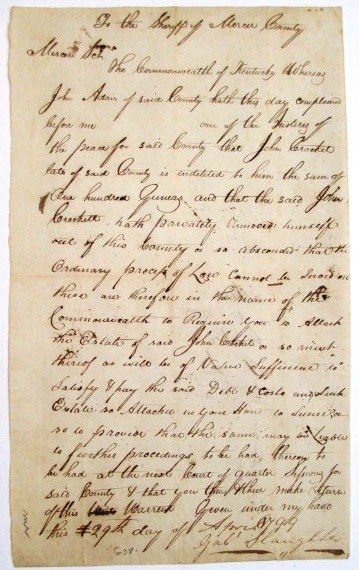 To the Sheriff of Mercer County
Mercer Sct.
The Commonwealth of Kentucky Whereas
John Adair of said County hath this day complained
before me one of the Justices of
the peace for said County that John Crocket
late of said County is indebted to him the sum of
One hundred Guineas and that the said John
Crockett hath privately removed himself
out of this County or so absconded that the
Ordinary process of Law cannot be served on
these are therefore in the name of the
Commonwealth to Require you to Attach
the Estate of said John Crocket or so much
thereof as will be of Value Sufficient to
Satisfy & pay the said Debt & Costs and such
Estate so Attached in your Hand to secure or
so to provide that the same may be Liable
to further proceedings to be had thereon to
be had at the next Court of quarter Sessions for
said County & that you then & there make return
of this Warrant Given under my hand
this 29th day of
Gab. Slaughter
Gov.